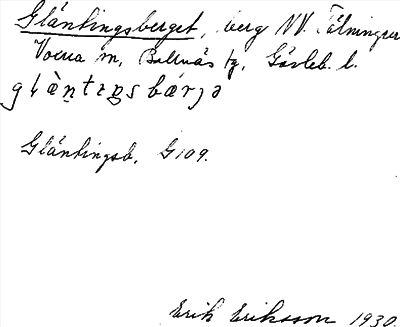 Gläntingsberget, berg NV. Tälningen
Voxna sn, Bollnäs tg, Gävleb. l.
glæ̀ntɪŋsbærjə
Gläntingsb. G109.
Erik Eriksson 1930.